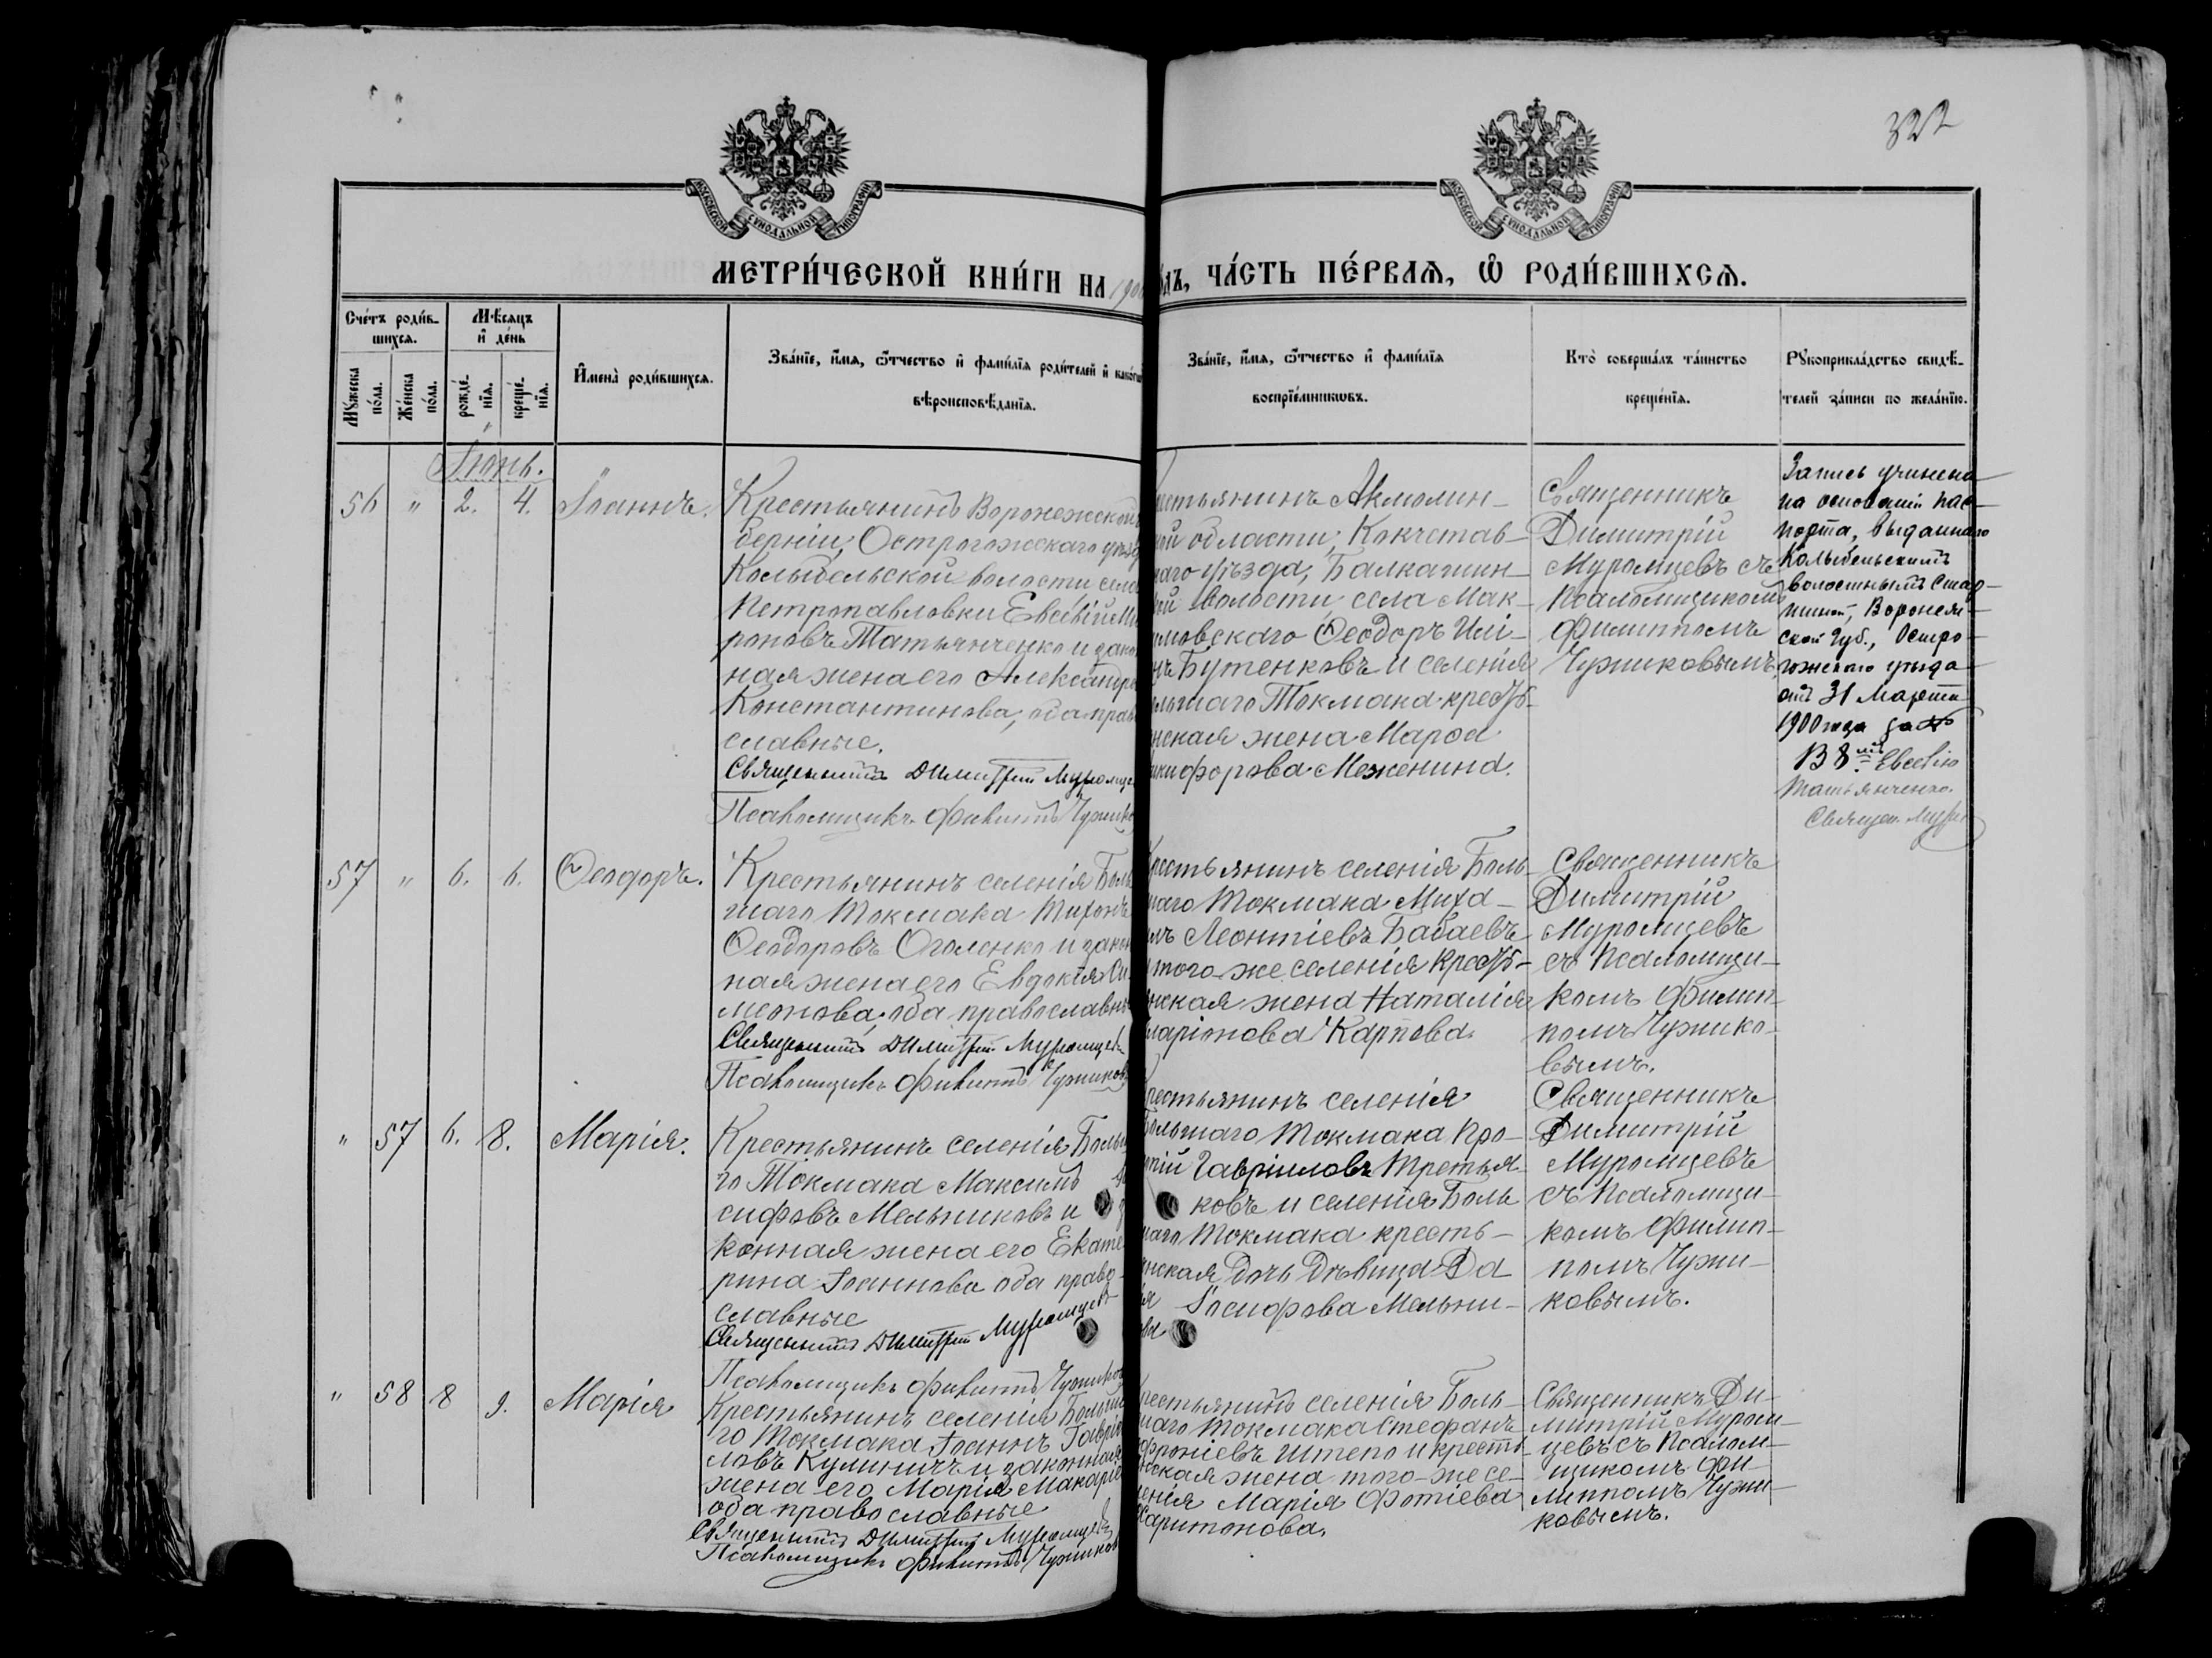 322
МОСКОВСКОЙ СѴНОДАЛЬНОЙ ТИПОГРАФІИ
МОСКОВСКОЙ СѴНОДАЛЬНОЙ ТИПОГРАФІИ
МЕТРИ́ЧЕСКОЙ КНИ́ГИ НА 190
ОДЪ, ЧА́СТЬ ПЕ́РВАѦ, Ѡ҆ РОДИ́ВШИХСѦ.
Сче́тъ роди́в-
шихсѧ.
Мꙋ́жеска
по́ла.
Же́нска
по́ла.
Мѣ́сѧцъ
и҆ де́нь
рожде́-
нїѧ.
креще́-
нїѧ.
И҆мена̀ роди́вшихсѧ.
Зва́нїе, и҆́мѧ, ѻ҆́тчество и҆ фами́лїѧ роди́телей и҆ како́гѡ
вѣроисповѣ́данїѧ.
Зва́нїе, и҆́мѧ, ѻ҆́тчество и҆ фами́лїѧ
воспрїе́мникѡвъ.
Кто̀ соверша́лъ та́инство
креще́нїѧ.
Рꙋкоприкла́дство свидѣ́-
телей за́писи по жела́нїю.
Іюнь.
56 " 2. 4. Іоаннъ.
Крестьянинъ Воронежской
берніи, Острогожскаго уѣзд
Колыбельской волости, села
Петропавловки Евсевій Ми
роновъ Татьянченко и закон
ная жена его Александра
Константинова, оба право
славные.
Священникъ Димитрій Муромце
Псаломщикъ Филиппъ Чужико
рестьянинъ Акмолин-
кой области, Кокчетав-
наго уѣзда, Балкашин-
ой волости, села Мак-
имовскаго Ѳеодоръ Илі-
нъ Бутенковъ и селенія
ольшаго Токмака кресть-
нская жена Марѳа
икифорова Меженина.
Священникъ
Димитрій
Муромцевъ съ
псаломщикомъ
Филиппомъ
Чужиковымъ
Запись учинена
на основаніи пас-
порта, выданнаго
Колыбельскимъ
волостнымъ Стар-
шиной, Воронеж-
ской губ., Остро-
гожскаго уѣзда
отъ 31 Марта
1900 года за №
В 8 Евсевію
Татьянченко.
Священ. Муро
57 " 6. 6. Ѳеодоръ.
Крестьянинъ селенія Боль
шаго Токмака Тихонъ
Ѳеодоровъ Оголенко и закон
ная жена его Евдокія Си
меонова, оба православны
Священникъ Димитрій Муромцевъ
Псаломщикъ Филиппъ Чужиковъ
рестьянинъ селенія Боль-
шаго Токмака Миха-
илъ Леонтіевъ Бабаевъ
и того-же селенія кресть-
нская жена Наталія
ларіонова Карпова
Священникъ
Димитрій
Муромцевъ
съ псаломщи-
комъ Филип-
помъ Чужико-
вымъ.
" 57 6. 8. Марія.
Крестьянинъ селенія Больша
го Токмака Максимъ Іо
сифовъ Мельниковъ и за
конная жена его Екате
рина Іоаннова оба право-
славные
Священникъ Димитрій Муромцевъ
Псаломщикъ Филиппъ Чужиковъ
рестьянинъ селенія
Большаго Токмака Про-
опій Гавріиловъ Третья-
ковъ и селенія Боль
шаго Токмака кресть-
янская дочь дѣвица Да
ья Іосифова Мельни-
ова
Священникъ
Димитрій
Муромцевъ
съ псаломщи-
комъ Филип-
помъ Чужи-
ковымъ.
" 58 8 9. Марія
Крестьянинъ селенія Больша
го Токмака Іоаннъ Гаврі
ловъ Кулиничъ и законная
жена его Марія Макаріе
оба православные
Священникъ Димитрій Муромцевъ
Псаломщикъ Филиппъ Чужиков
рестьянинъ селенія Боль-
шаго Токмака Стефанъ
фроніевъ Штепо и кресть-
нская жена того-же се-
енія Марія Фотіева
Харитонова.
Священникъ Ди-
митрій Муром-
цевъ съ псалом-
щикомъ Фи-
липпомъ Чужи-
ковымъ.